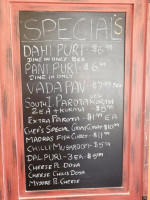 SPECIAL'S
DAHI PURI - $6.99
DINE IN ONLY
PANI PURI - $6.99
DINE IN ONLY
VADA PAV - $7.99
SOUTH I. PAROTA KURMA
2EA + KURMA
EXTRA PAROTA - $1.99 EA
CHEF'S SPECIAL CURRY
MADRAS FISH CURRY - $
CHILLI MUSHROOM -
DAL PURI - 3EA - $
CHEESE PL DOSA
CHEESE CHILLI DOSA
MYSORE PL CHEESE